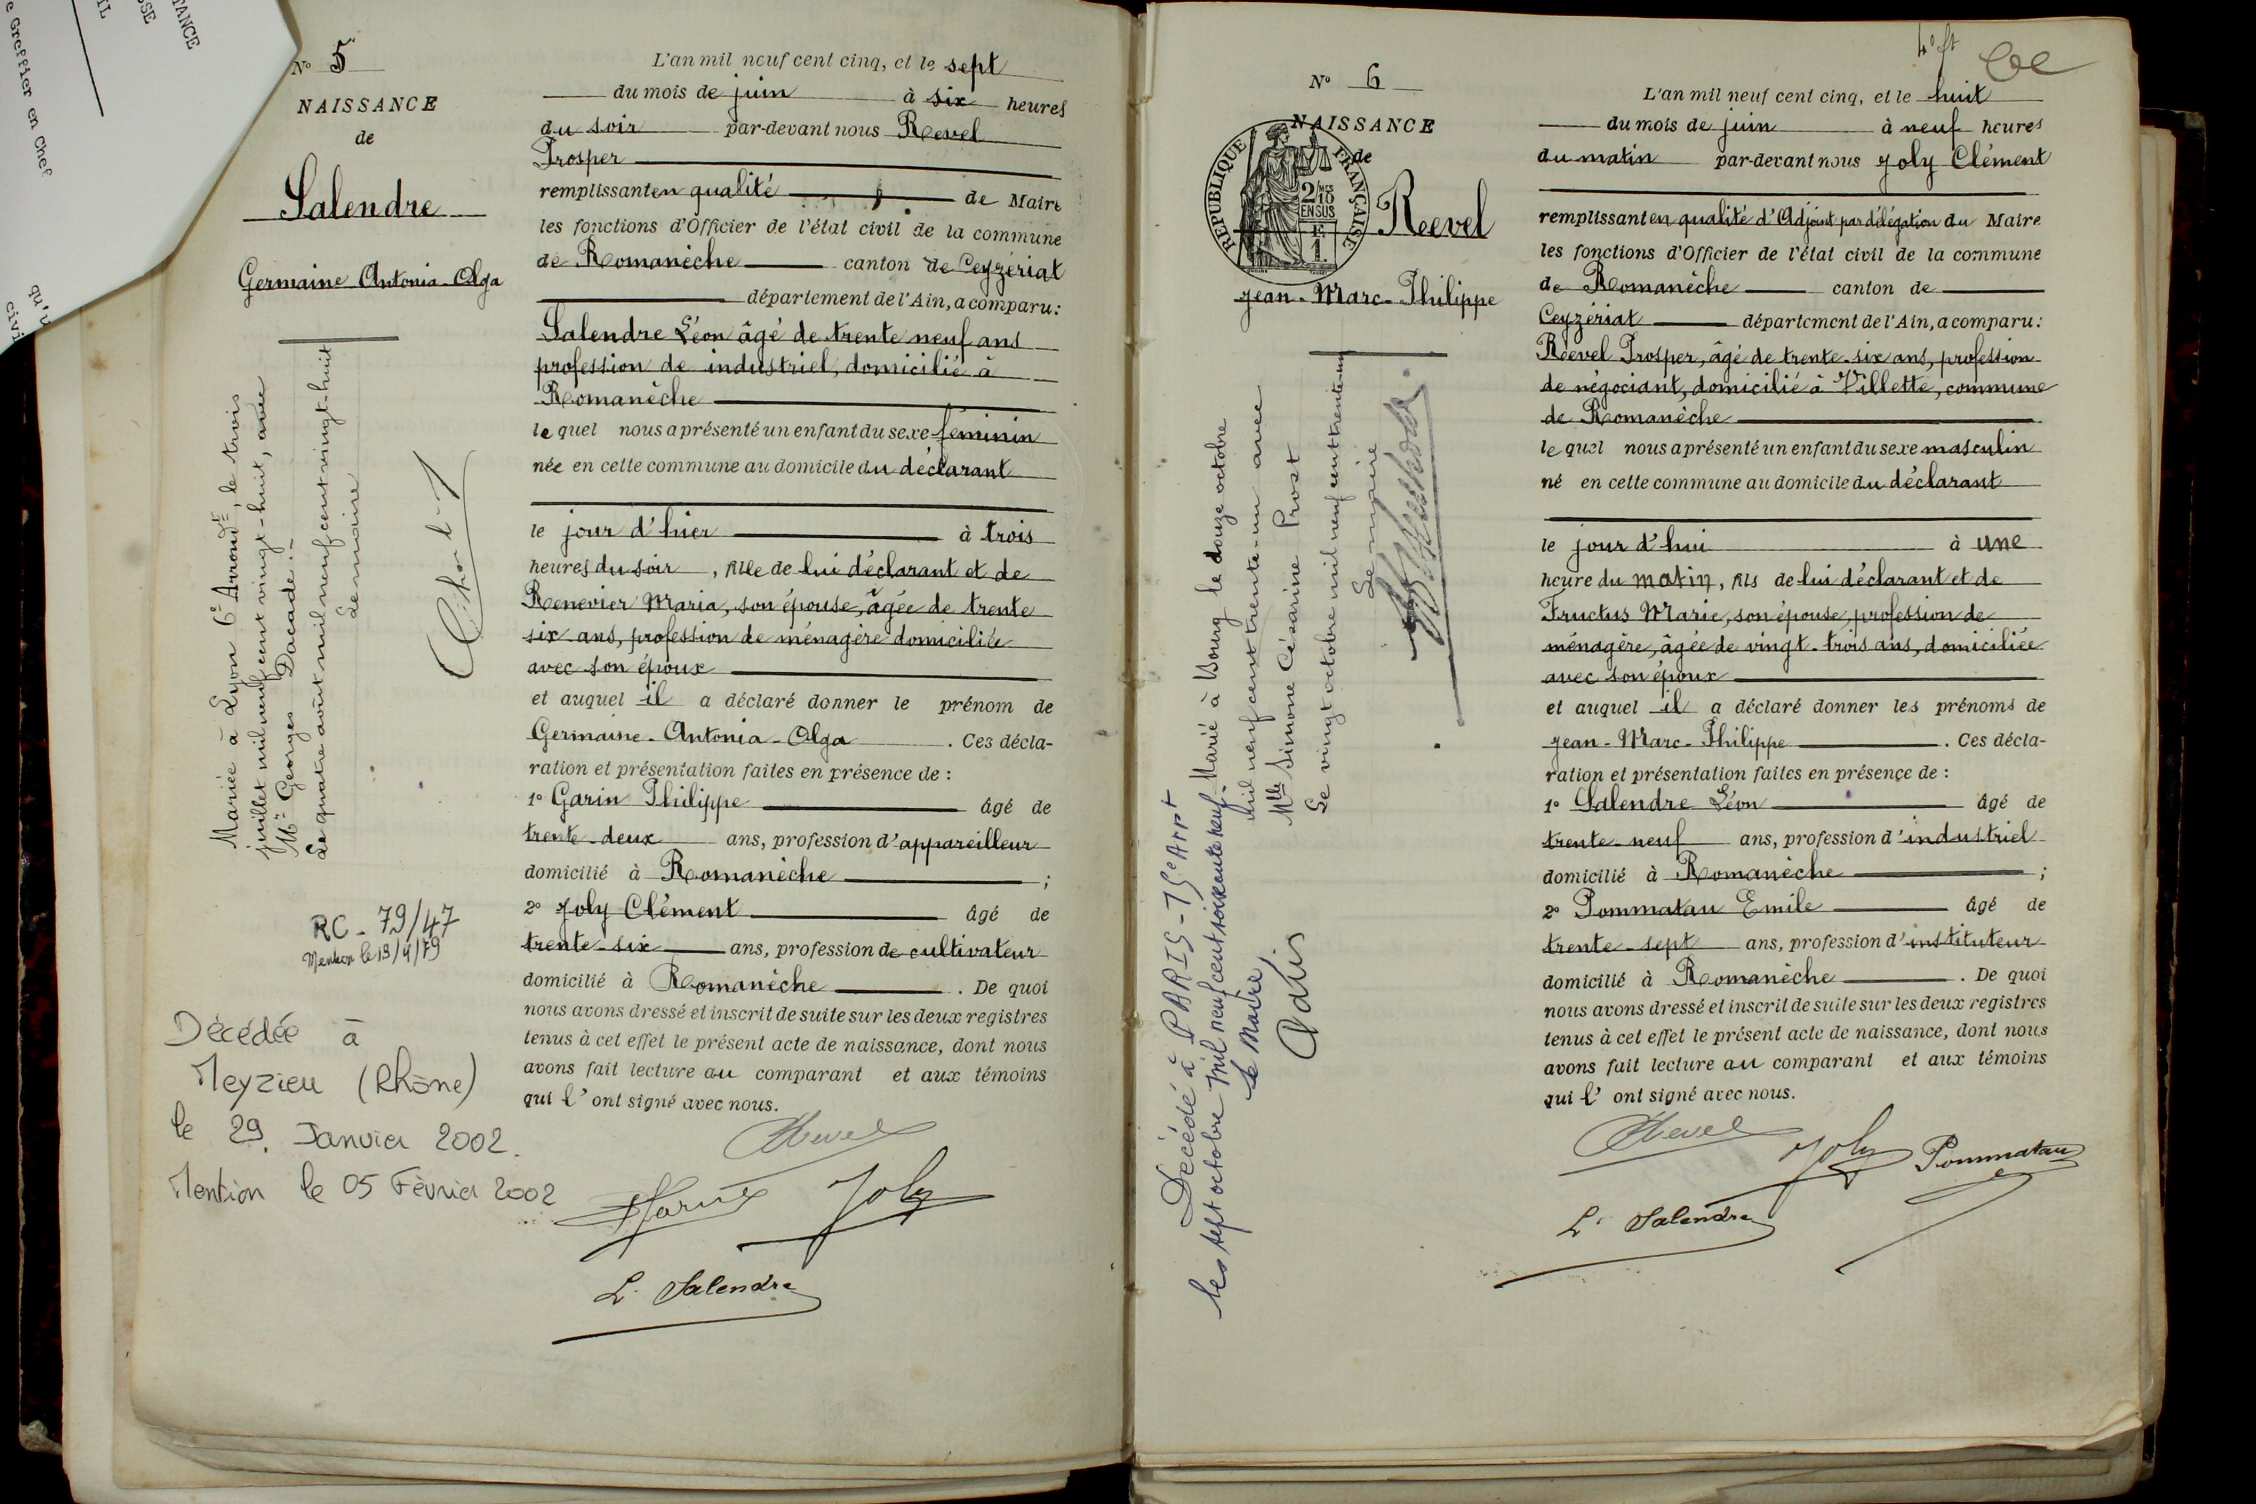 TANCE
OSE
IL
e Greffier en Chef
qu'u
civi
No 5
NAISSANCE
de
Salendre
Germaine-Antonia-Olga
Mariée à Lyon 6e Arrondt, le trois
juillet mil neuf cent vingt-huit, avec
Mr Georges Dacade.-
Le quatre août mil neuf cent vingt-huit
Le maire
RC - 79/47
Mention le 13/4/79
Décédée à
Meyzieu (Rhône)
le 29. Janvier 2002.
Mention le 05 Février 2002
L'an mil neuf cent cinq, et le sept
du mois de juin à six heures
du soir par-devant nous Revel
Prosper
remplissant en qualité de Maire
les fonctions d'Officier de l'état civil de la commune
de Romanèche canton de Ceyzériat
département de l'Ain, a comparu:
Salendre Léon âgé de trente neuf ans
profession de industriel, domicilié à
Romanèche
lequel nous a présenté un enfant du sexe féminin
née en cette commune au domicile du déclarant
le jour d'hier à trois
heures du soir, fille de lui déclarant et de
Renevier Maria, son épouse, âgée de trente
six ans, profession de ménagère domiciliée
avec son époux
et auquel il a déclaré donner le prénom de
Germaine-Antonia-Olga. Ces décla-
ration et présentation faites en présence de:
1o Garin Philippe âgé de
trente-deux ans, profession d'appareilleur
domicilié à Romanèche;
2o Joly Clément âgé de
trente-six ans, profession de cultivateur
domicilié à Romanèche. De quoi
nous avons dressé et inscrit de suite sur les deux registres
tenus à cet effet le présent acte de naissance, dont nous
avons fait lecture au comparant et aux témoins
qui l'ont signé avec nous.
Revel
Garin Joly
L. Salendre
No 6
NAISSANCE
de
RÉPUBLIQUE FRANÇAISE
2/10mes
EN SUS
1F.
Revel
Jean-Marc-Philippe
Marié à Bourg le douze octobre
mil neuf cent trente-un avec
Mlle Simone Césarine Prost
Le vingt octobre mil neuf cent trente-un
Le maire
Décédé à PARIS-15e Arrt
les sept octobre mil neuf cent soixante neuf.
le Maire,
L'an mil neuf cent cinq, et le huit
du mois de juin à neuf heures
du matin par-devant nous Joly Clément
remplissant en qualité d'Adjoint par délégation du Maire
les fonctions d'Officier de l'état civil de la commune
de Romanèche canton de
Ceyzériat département de l'Ain, a comparu:
Revel Prosper, âgé de trente-six ans, profession
de négociant, domicilié à Villette, commune
de Romanèche
lequel nous a présenté un enfant du sexe masculin
né en cette commune au domicile du déclarant
le jour d'hui à une
heure du matin, fils de lui déclarant et de
Fructus Marie, son épouse, profession de
ménagère, âgée de vingt-trois ans, domiciliée
avec son époux
et auquel il a déclaré donner les prénoms de
Jean-Marc-Philippe. Ces décla-
ration et présentation faites en présence de:
1o Salendre Léon âgé de
trente-neuf ans, profession d'industriel
domicilié à Romanèche;
2o Pommatau Emile âgé de
trente-sept ans, profession d'instituteur
domicilié à Romanèche. De quoi
nous avons dressé et inscrit de suite sur les deux registres
tenus à cet effet le présent acte de naissance, dont nous
avons fait lecture au comparant et aux témoins
qui l'ont signé avec nous.
Revel Joly Pommatau
L. Salendre